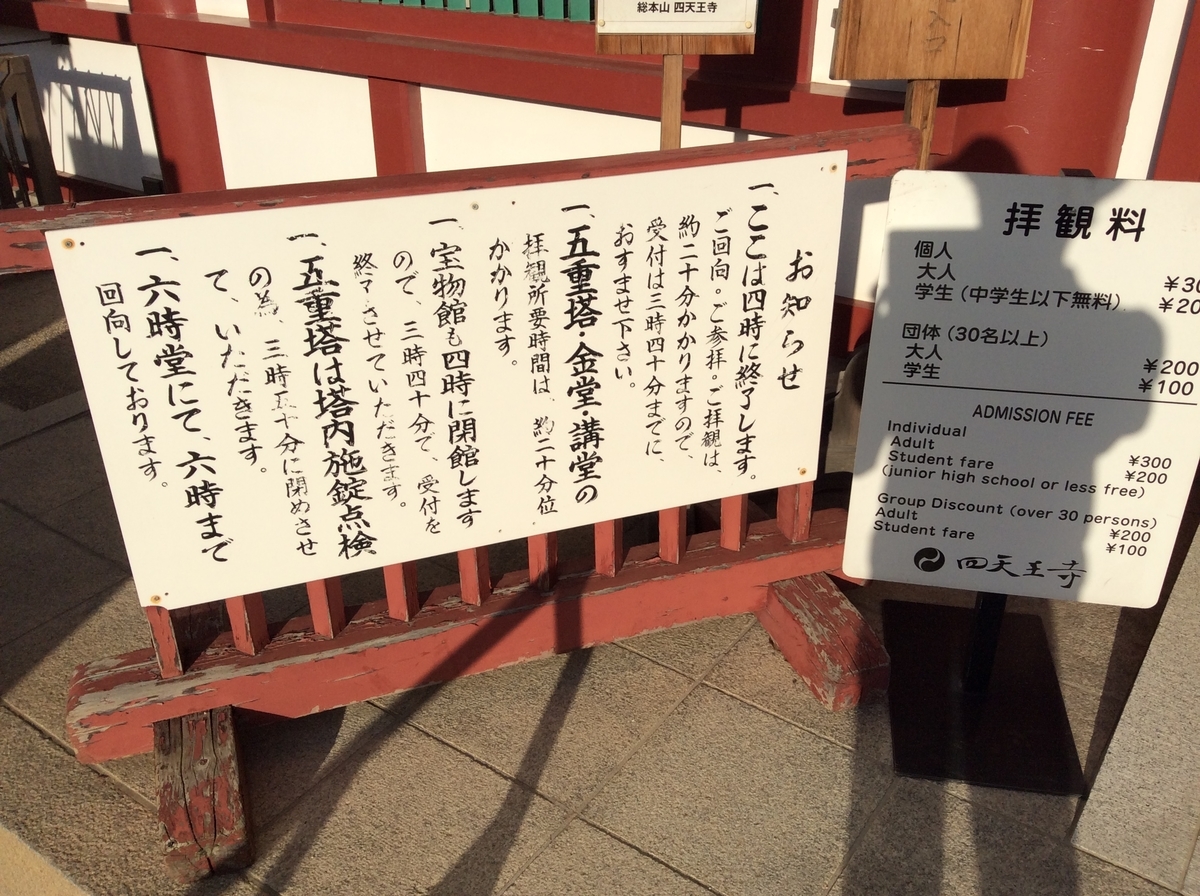 総本山 四天王寺
入口
お知らせ
一、ここは四時に終了します。
ご回向。ご参拝。ご拝観は、
約二十分かかりますので、
受付は三時四十分までに、
おすませ下さい。
一、五重塔・金堂・講堂の
拝観所要時間は、約二十分位
かかります。
一、宝物館も四時に閉館します
ので、三時四十分で、受付を
終了させていただきます。
一、五重塔は塔内施錠点検
の為、三時五十分に閉めさせ
て、いただきます。
一、六時堂にて、六時まで
回向しております。
拝観料
個人
大人 ¥30
学生 (中学生以下無料) ¥20
団体 (30名以上)
大人 ¥200
学生 ¥100
ADMISSION FEE
Individual
Adult ¥300
Student fare ¥200
(junior high school or less free)
Group Discount (over 30 persons)
Adult ¥200
Student fare ¥100
四天王寺